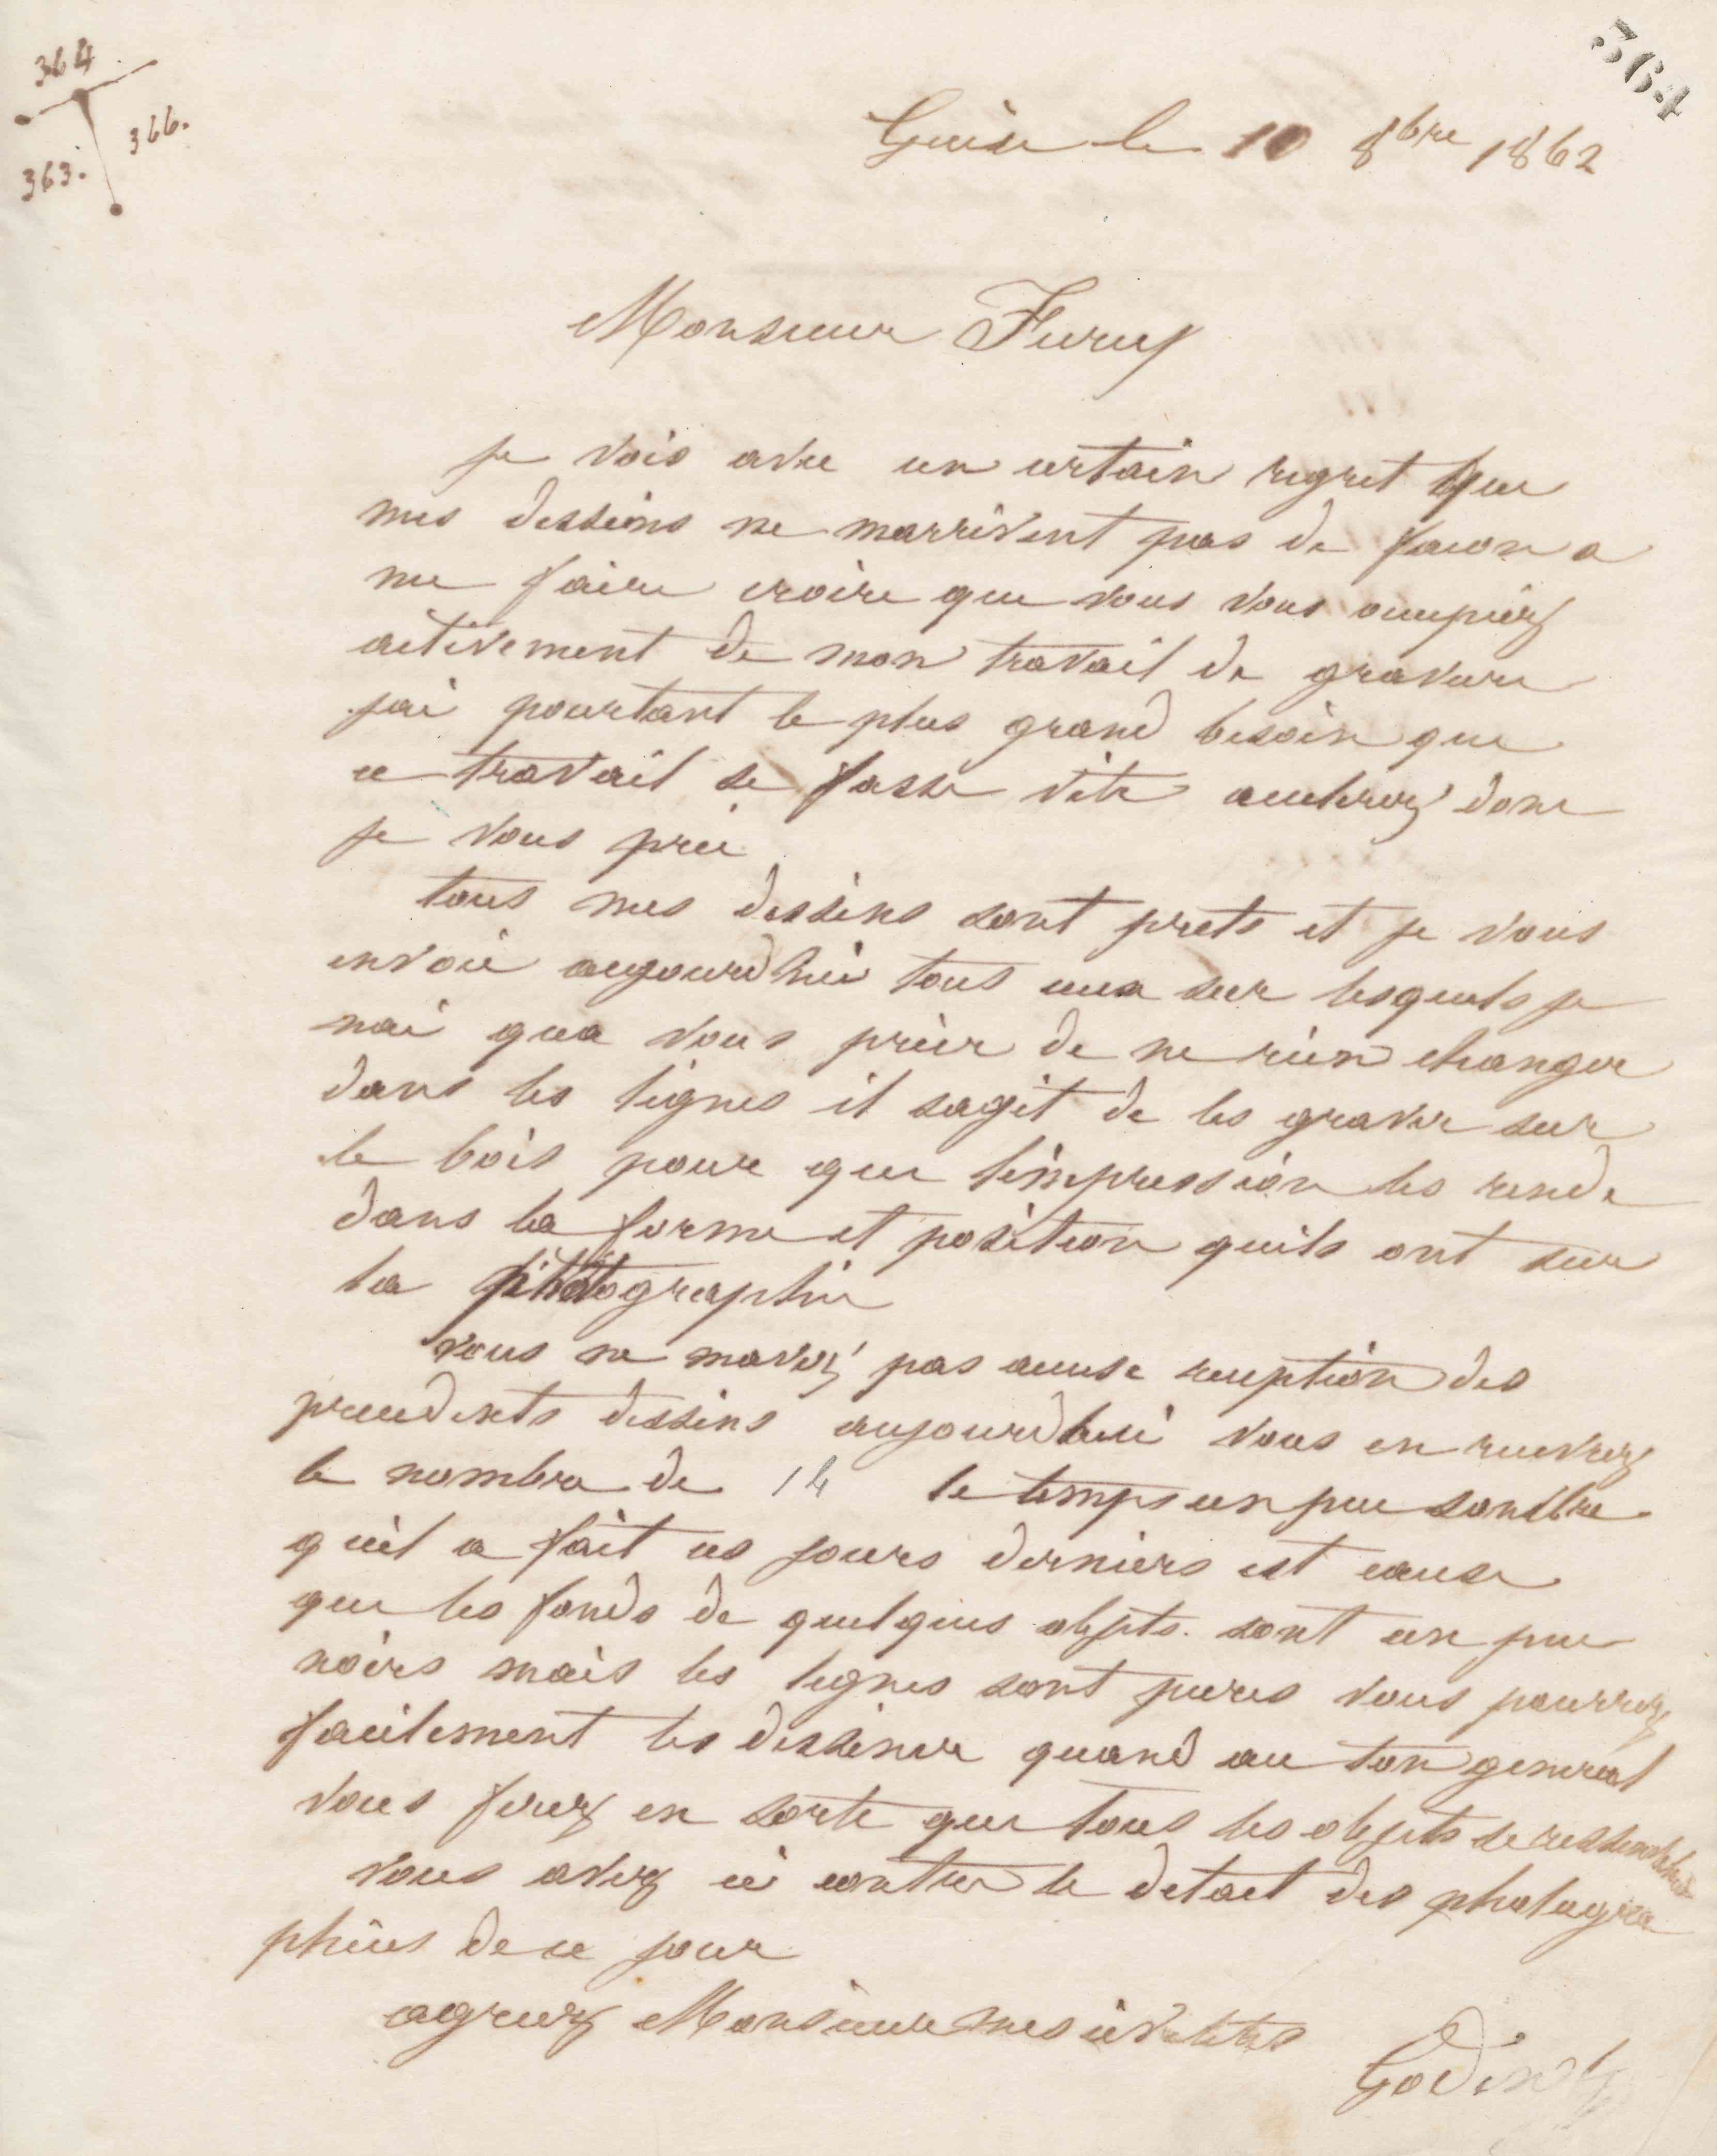 364
364
366.
363.
Guise le 10 8bre 1862
Monsieur
je vois avec un certain regret que
mes dessins ne marrivent pas de facon a
me faire croire que vous vous occupiez
activement de mon travail de gravure
jai pourtant le plus grand besoin que
ce travail se fasse vite accelerez donc
je vous prie
tous mes dessins sont prets et je vous
envoie aujourdhui tous ceux sur lesquels je
nai qua vous prier de ne rien changer
dans les lignes il sagit de les graver sur
le bois pour que limpression les rende
dans la forme et position quils ont sur
la photographie
vous ne mavez pas accuse reception des
precedents dessins aujourdhui vous en recevrez
le nombre de 14 le temps un peu sombre
quil a fait ces jours derniers est cause
que les fonds de quelques objets sont un peu
noirs mais les lignes sont pures vous pourrez
facilement les dessiner quand au ton general
vous ferez en sorte que tous les objets se ressemblent
vous avez ci contre le detail des photogra
phies de ce jour
agreez Monsieur mes civilités
Godin